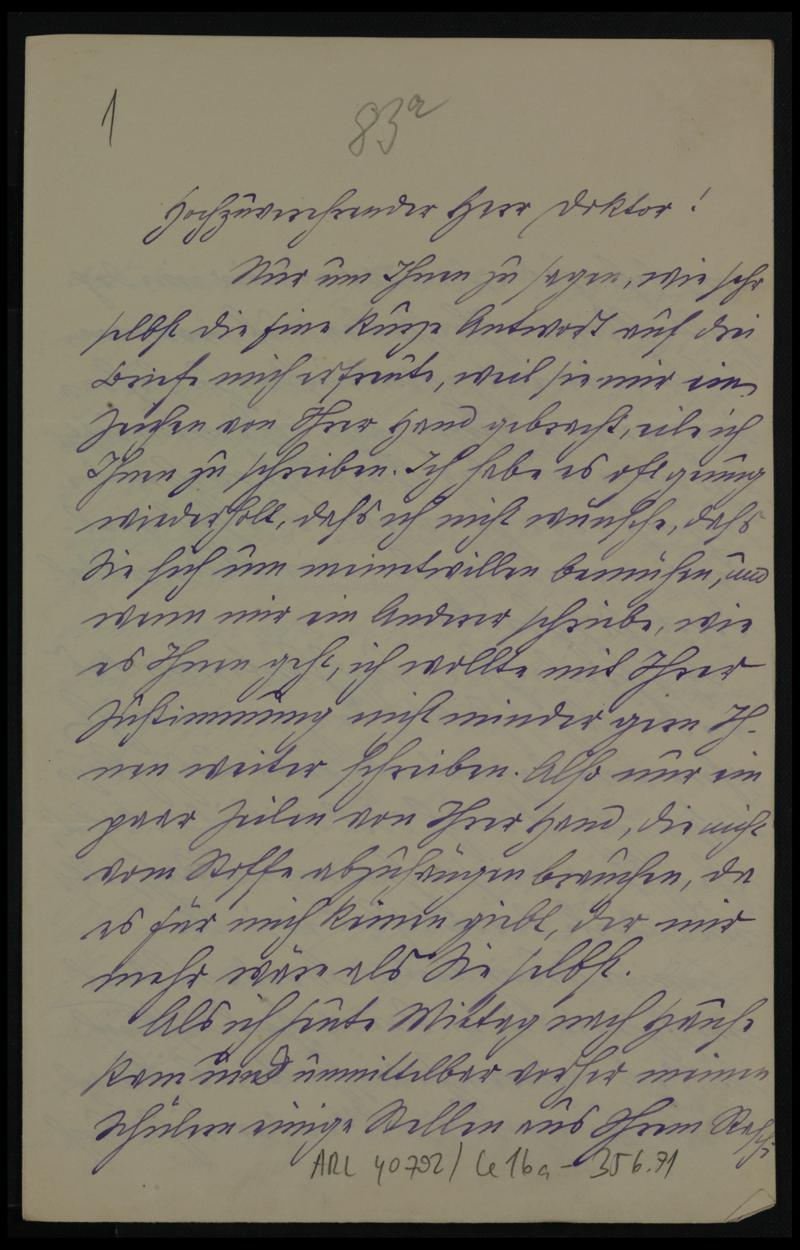 1
83a
Hochzuverehrender Herr Doktor!
Nur um Ihnen zu sagen, wie sehr
selbst die eine kurze Antwort auf drei
Briefe mich erfreute, weil sie mir ein
Zeichen von Ihrer Hand gebracht, eile ich
Ihnen zu schreiben. Ich habe es oft genug
wiederholt, dass ich nicht wünsche, dass
Sie sich um meinetwillen bemühen, und
wenn mir ein Anderer schriebe, wie
es Ihnen geht, ich wollte mit Ihrer
Zustimmung nicht minder gern Ih-
nen weiter schreiben. Also nur ein
paar Zeilen von Ihrer Hand, die nicht
vom Stoffe abzuhängen brauchen, da
es für mich keinen giebt, der mir
mehr wäre als Sie selbst.
Als ich heute Mittag nach Hause
kam und unmittelbar vorher meinen
Schülern einige Stellen aus Ihrem
ARL 40792/ Le 16a - 356.91